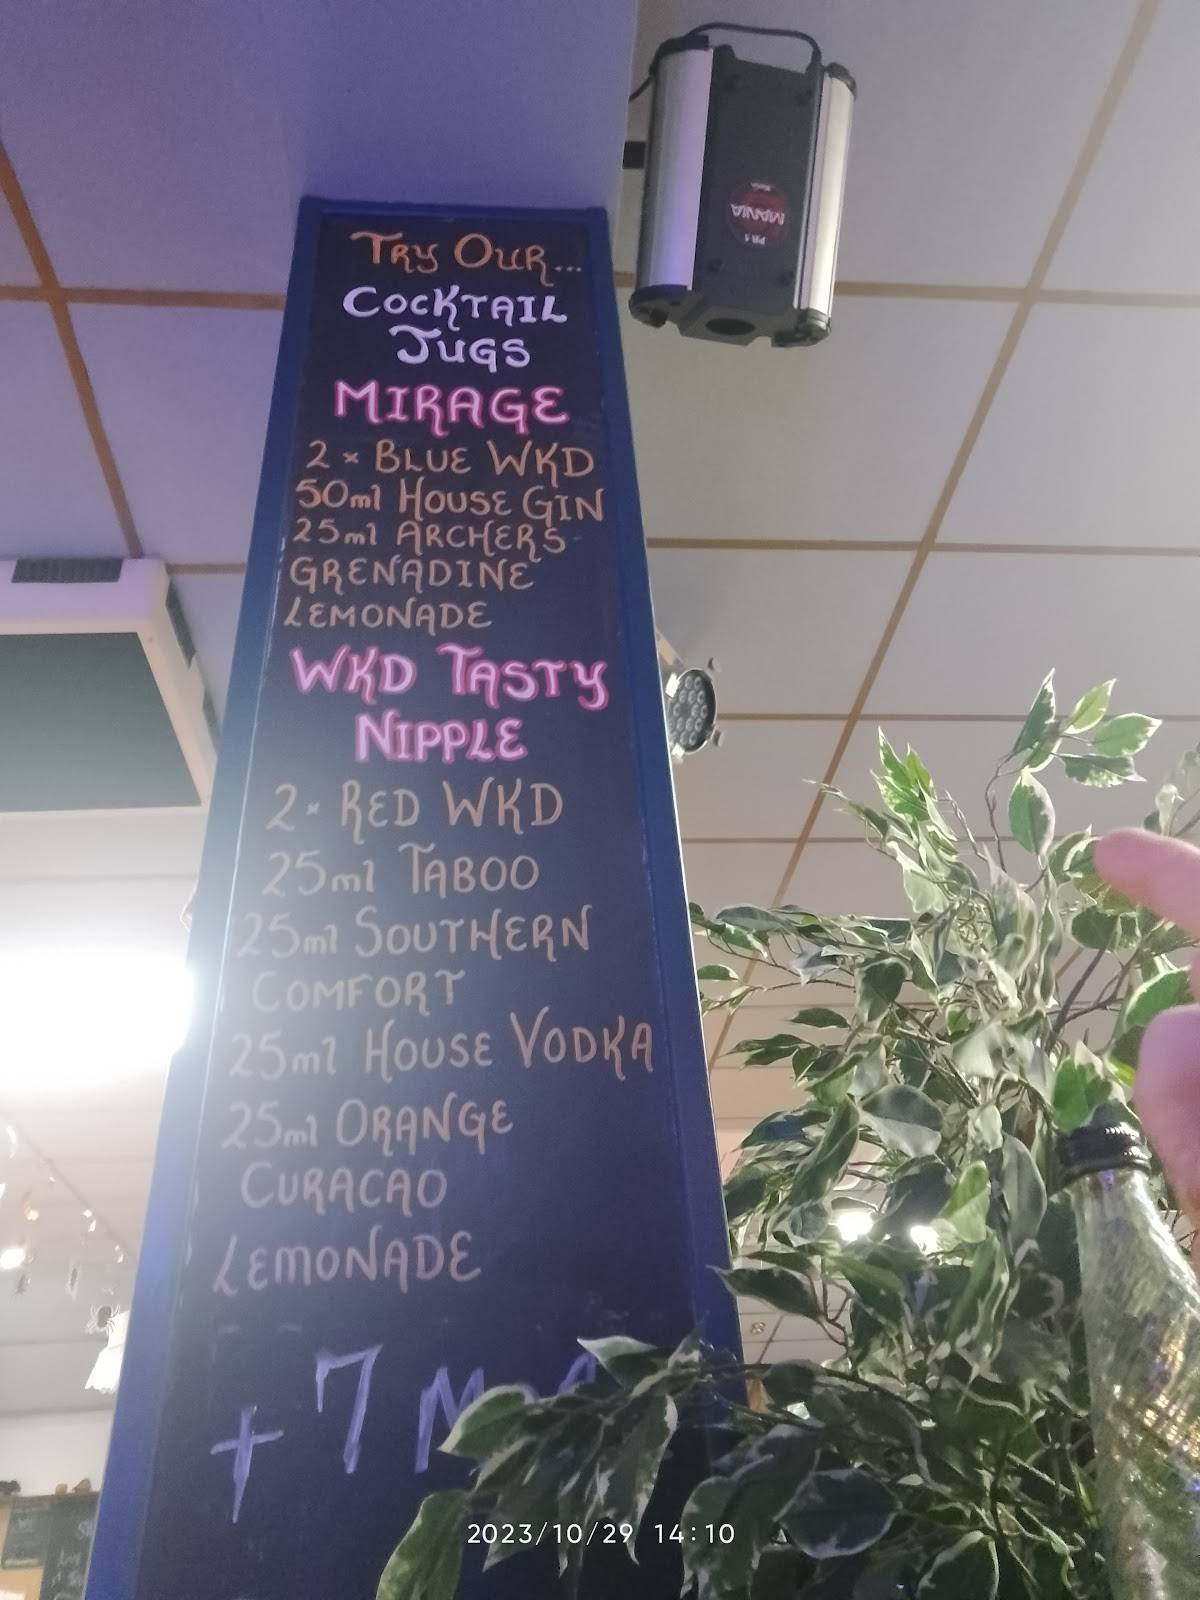 Try Our...
Cocktail
Jugs
Mirage
2 x Blue WKD
50ml House Gin
25ml Archers
Grenadine
Lemonade
WKD Tasty
Nipple
2 x Red WKD
25ml Taboo
25ml Southern
Comfort
25ml House Vodka
25ml Orange
Curacao
Lemonade
+ 7
MANIA
2023/10/29 14:10